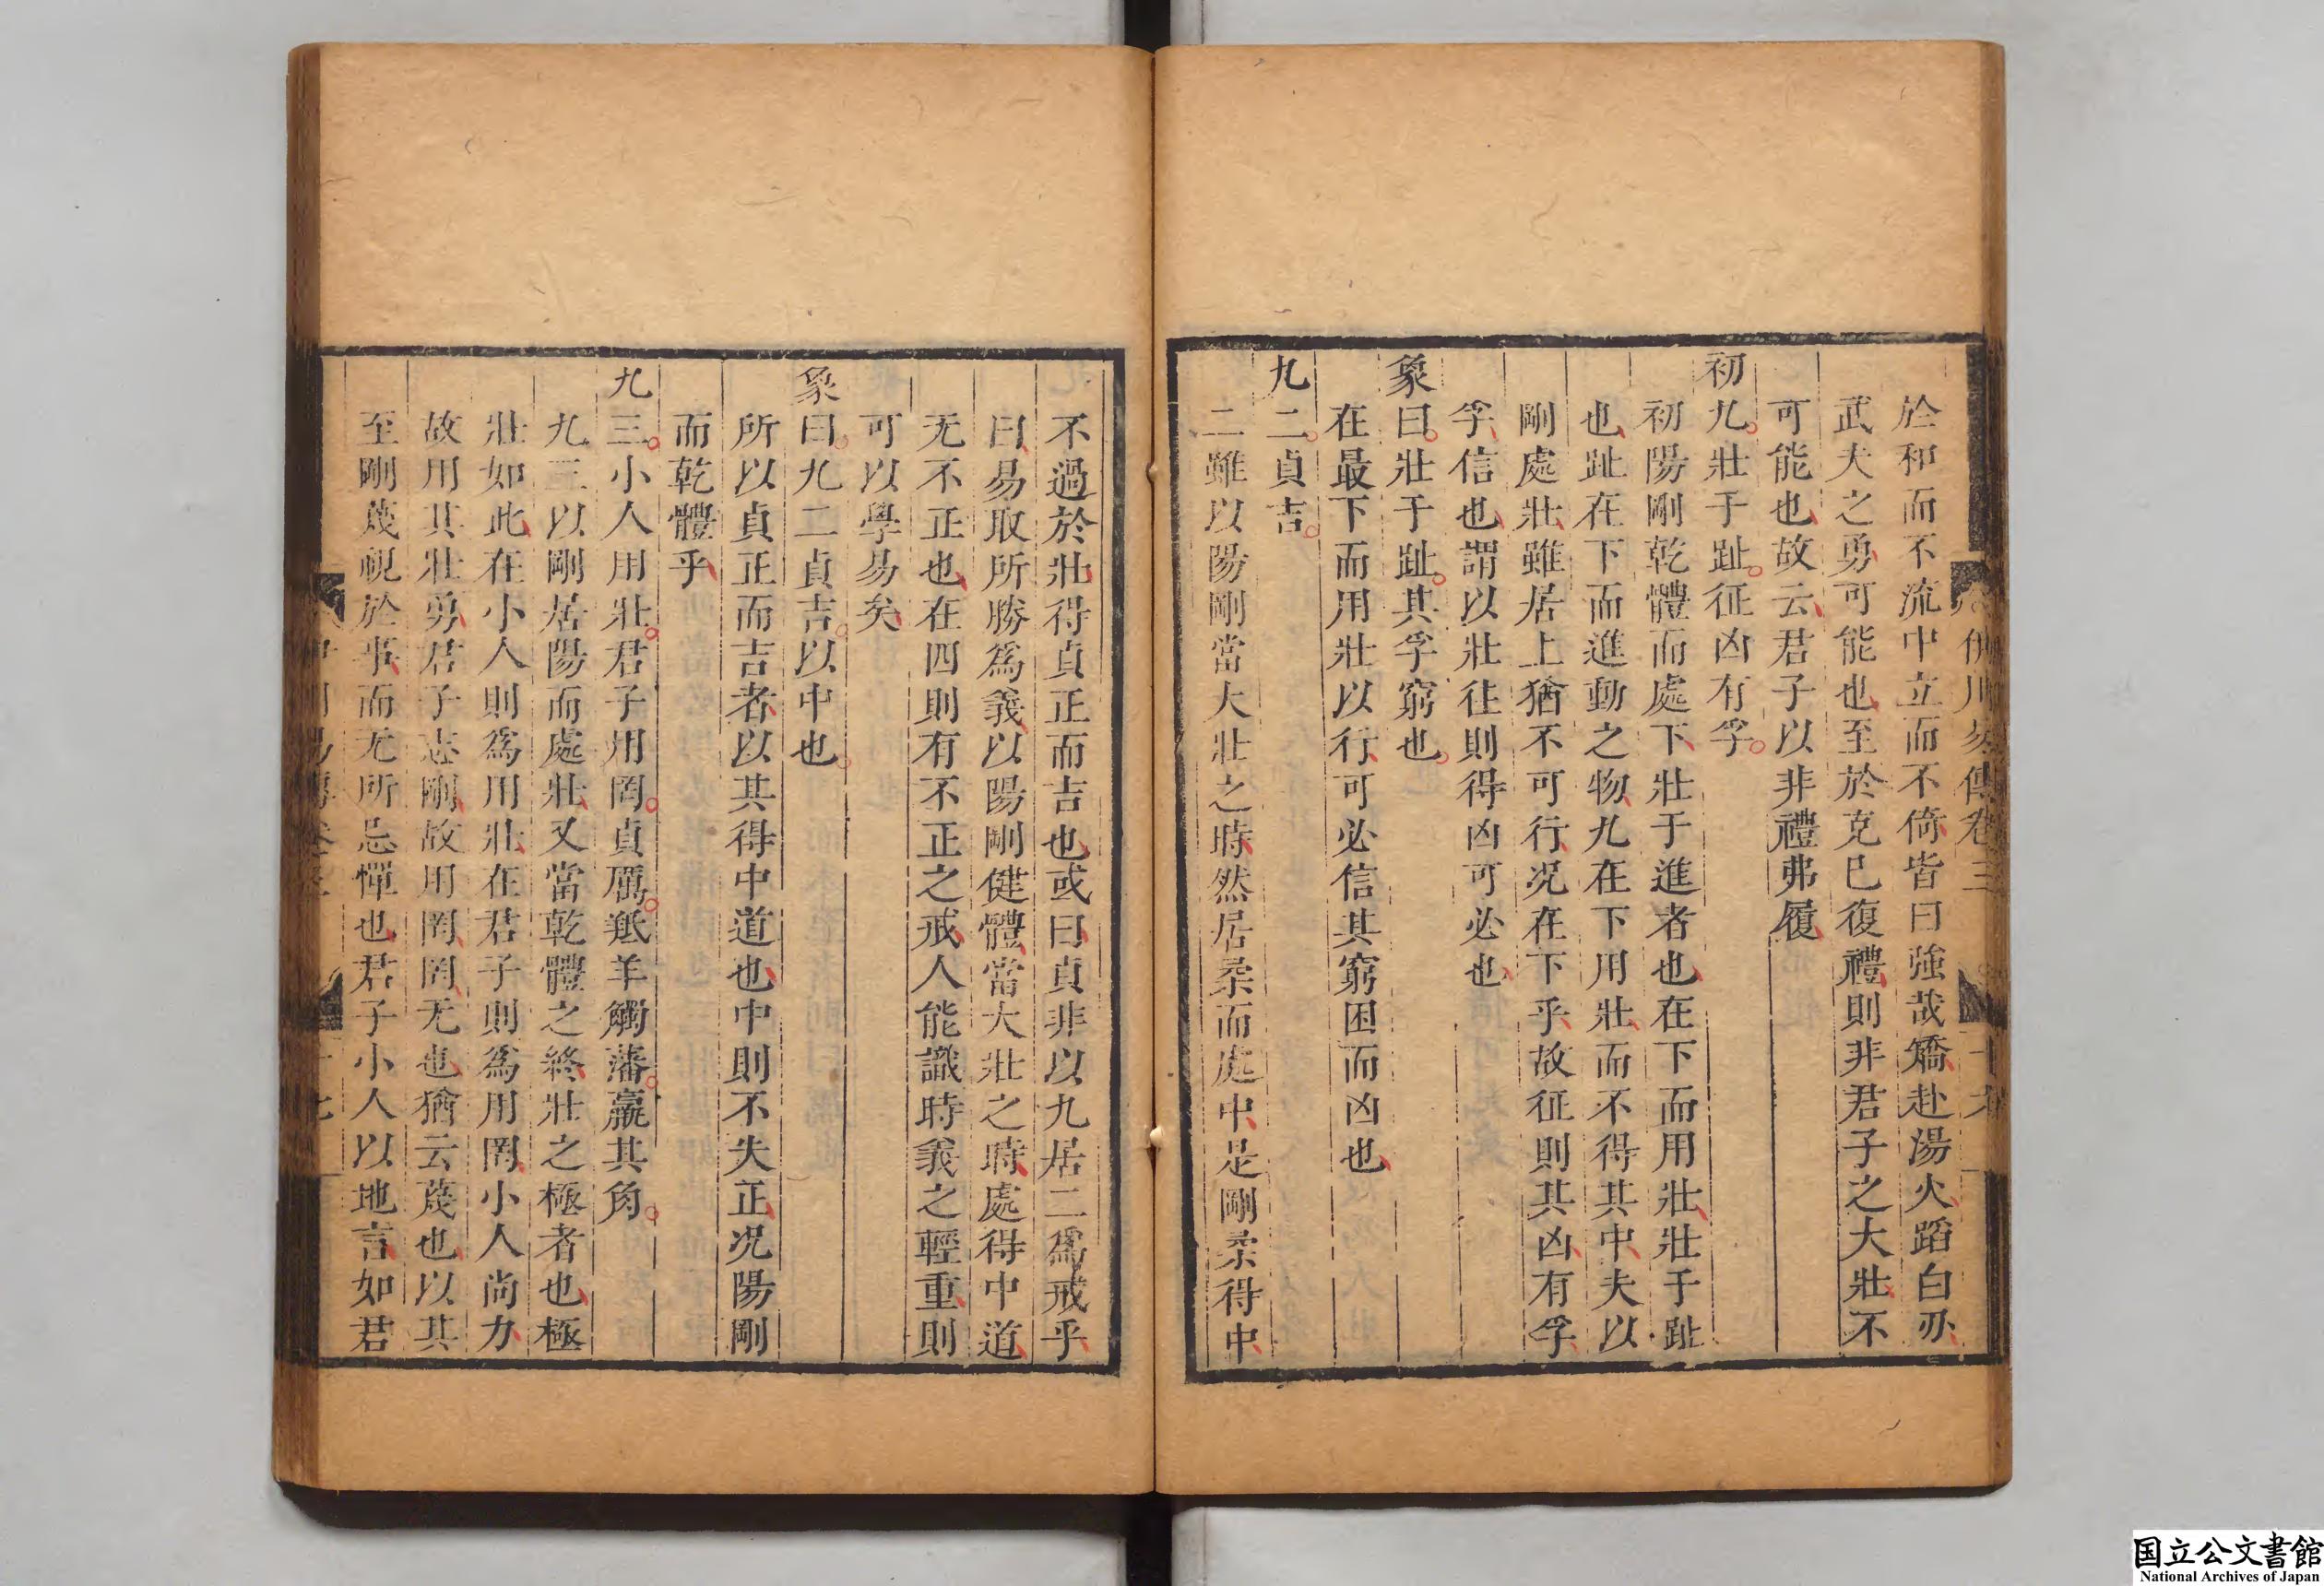 於和而不流中立而不倚皆曰強哉矯赴湯火蹈白刃
武夫之勇可能也至於克已復禮則非君子之大壯不
可能也故云君子以非禮弗履
初九壯于趾征凶有孚
初陽剛乾體而處下壯于進者也在下而用壯壯于趾
也趾在下而進動之物九在下用壯而不得其中夫以
剛處壯雖居上猶不可行况在下乎故征則其凶有孚
孚信也謂以壯徃則得凶可必也
象曰壯于趾其孚窮也
在最下而用壯以行可必信其窮困而凶也
九二貞吉
二雖以陽剛當大壯之時然居柔而處中是剛柔得中
不過於壯得貞正而吉也或曰貞非以九居二爲戒乎
曰易取所勝爲義以陽剛健體當大壯之時處得中道
无不正也在四則有不正之戒人能識時義之輕重則
可以學易矣
象曰九二貞吉以中也
所以貞正而吉者以其得中道也中則不失正况陽剛
而乾體乎
九三小人用壯君子用罔貞厲羝羊觸藩羸其角
九三以剛居陽而處壯又當乾體之終壯之極者也極
壯如此在小人則爲用壯在君子則爲用罔小人尚力
故用其壯勇君子志剛故用罔罔无也猶云蔑也以其
至剛蔑視於事而无所忌憚也君子小人以地言如君
国立公文書館
National Archives of Japan